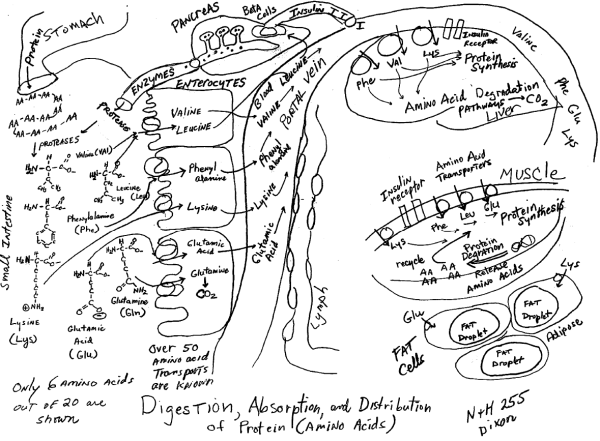 Protein
STOMACH
PANCREAS
Beta
Cells
Insuline I I I
AA-AA-AA-AA
AA-AA-AA-AA
AA-AA-AA
ENZYMES
ENTEROCYTES
PROTEASES
PROTEASES
Valine (VAL)
Leucine (Leu)
Phenylalanine
(Phe)
Small Intestine
LYSINE
(Lys)
Glutamic
Acid
(Glu)
Glutamine
(Gln)
H₂N
NH₂
CH₃
VALINE
LEUCINE
Phenyl
alanine
Lysine
Glutamic
Acid
Glutamine
CO₂
Over 50
Amino acid
Transports
are known
Blood
VALINE
LEUCINE
PORTAL vein
Phenyl
alanine
Lysine
Glutamic Acid
Lymph
Phe
VAL
Lys
Insulin
Receptor
Protein
Synthesis
Amino Acid Degradation
PATHWAYS
CO₂
Liver
Valine
Phe
Glu
Lys
MUSCLE
Insulin
receptor
Amino Acid
Transporters
Lys
Phe
Leu
Glu
Protein
Synthesis
recycle
Protein
Degration
AA AA
AA AA
Release
Amino Acids
Glu
Lys
FAT
Droplet
FAT
Droplet
FAT
Droplet
FAT
Cells
Adipose
Only 6 Amino Acids
out of 20 are
shown
Digestion, Absorption, and Distribution
of Protein (Amino Acids)
N+H 255
Dixon